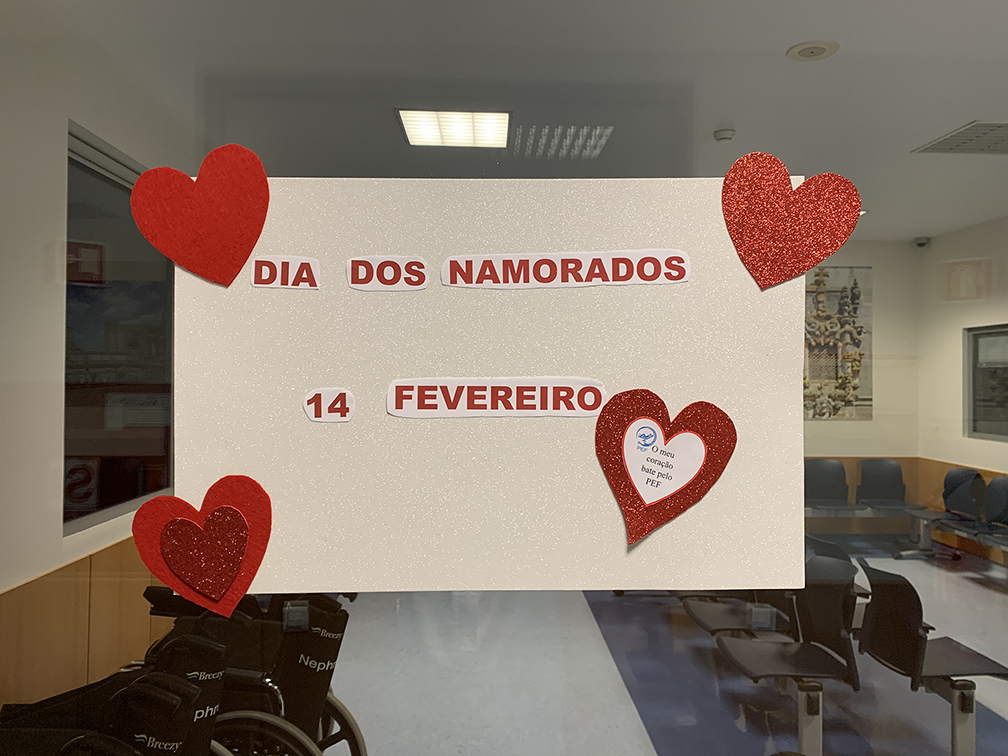 DIA DOS NAMORADOS
14 FEVEREIRO
PEF
O meu
coração
bate pelo
PEF
Breezy
Neph
Breezy
ph
Breezy